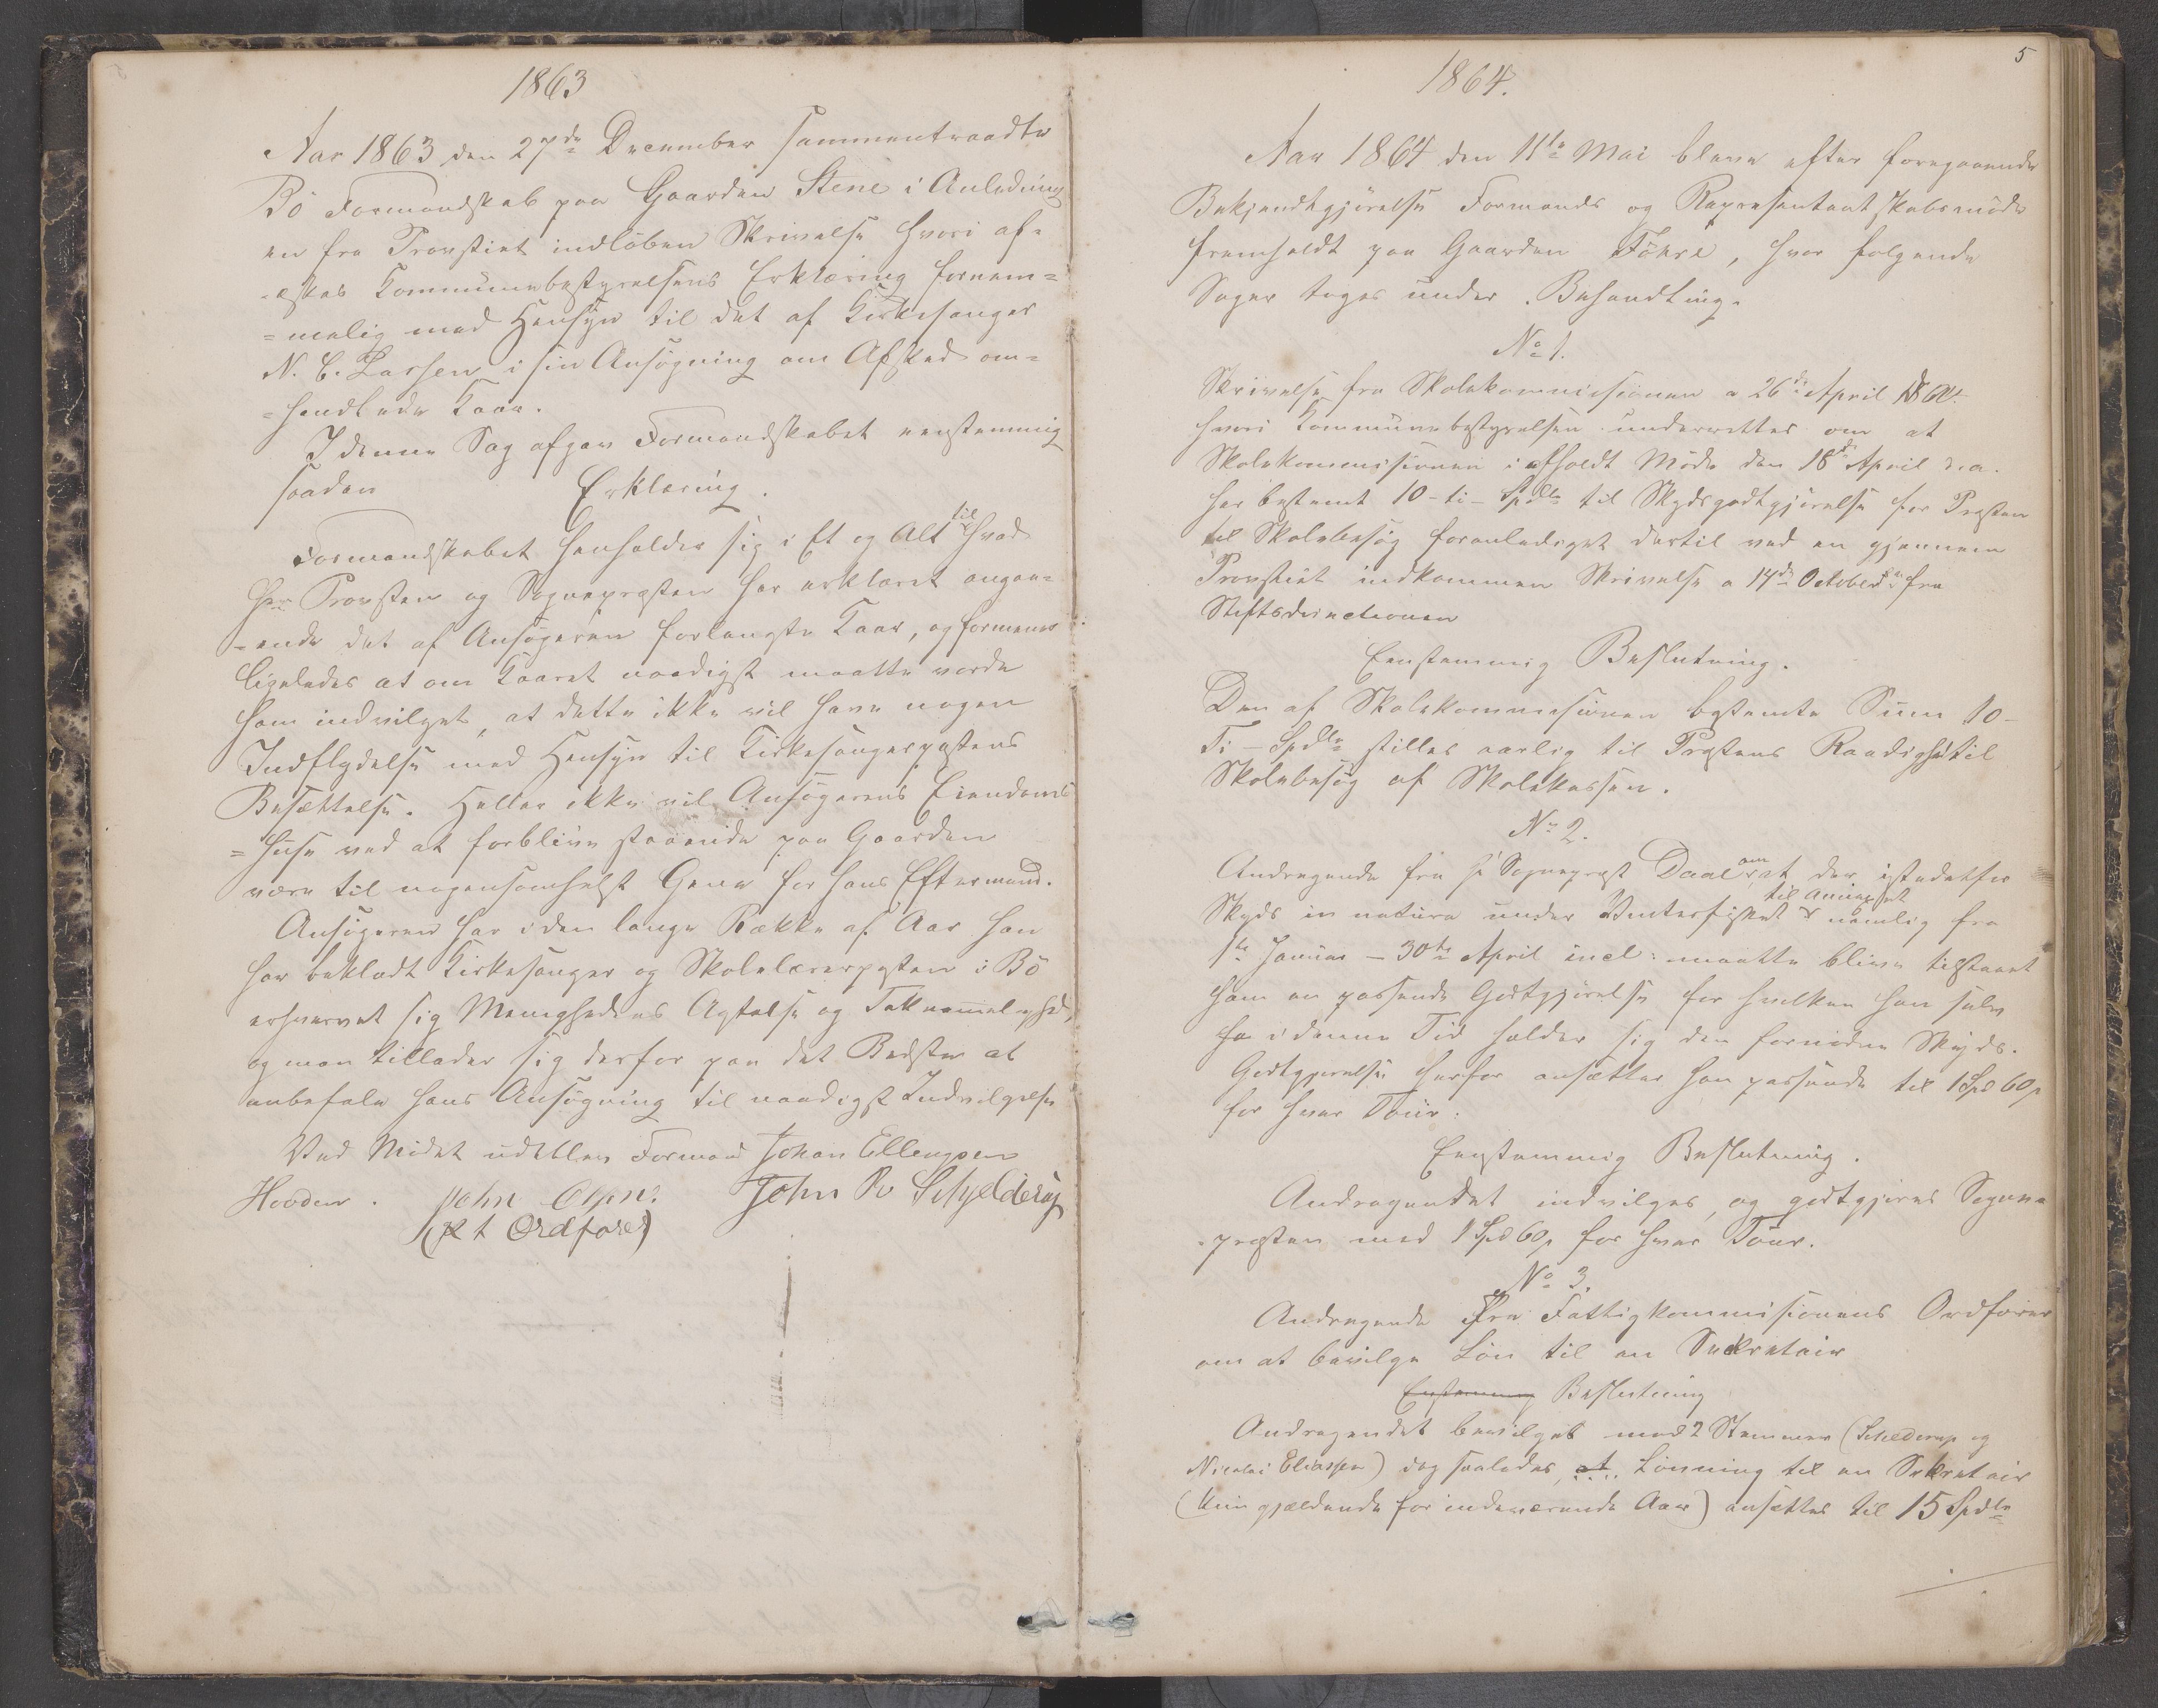 1863
Aar 1863 den 27de December sammentraadte
Bö Formandskab paa Gaarden Stene i Anledning
en fra Provstiet indlöben Skrivelse hvori af-
-æskes Kommunebestyrelsens Erklæring fornem=
=melig med Hensyn til det af Kirkesanger
N. C. Lassen i sin Ansøgning om Afsked om=
=handlede Kaar.
I denne Sag afgav Formandskabet eenstemmig
saadan Erklæring.
Formandskabet henholder sig i Et og Alt til hvad
Hr Provsten og Sognepræsten har erklæret angaa=
-ende det af Ansögeren forlangte Kaar, og formener
ligeledes at om Kaaret naadigst maatte vorde
ham indvilget, at dette ikke vil have nogen
Indflydelse med Hensyn til Kirkesangerpostens
Besættelse. Heller ikke vil Ansögerens Eiendoms
=huse ved at forblive staaende paa Gaarden
være til nogensomhelst Gene for hans Eftermand.
Ansögeren har i den lange Række af Aar han
har beklædt Kirkesanger og Skolelærerposten i Bö
erhvervet sig Menighedens Agtelse og Taknemelighed,
og man tillader sig derfor paa det Bedste at
anbefale hans Ansøgning til naadigst Indvilgelse
Ved Mödet udeblev Formand Johan Ellingsen
Hovden. John Olsen. John Sehjelderup
(p t Ordförer)
5
1864.
Aar 1864 den 11te Mai bleve efter foregaaende
Bekjendtgjörelse Formands og Repræsentantskabsmöde
fremholdt paa Gaarden Föhre, hvor følgende
Sager toges under Behandling.
No 1.
Skrivelse fra Skolekommissionen a 26de April 1864
hvori Kommunebestyrelsen underrettes om at
Skolekommisionen i afholdt Möde den 18de April d.a.
har bestemt 10 - ti - Spdlr til Skydsgodtgjörelse for Præsten
til Skolebesög foranlediget dertil ved en gjennem
Provstiet indkommen Skrivelse a 14de October fra
Stiftsdirectionen
Eenstemmig Beslutning.
Den af Skolekommissionen bestemte Sum 10 -
Ti - Spdlr stilles aarlig til Præstens Raadighed til
Skolebesög af Skolekassen.
No 2.
Andragende fra Hr Sognepræst Daae om, at der istedetfor
Skyds in natura under Vinterfisket til Annexet nemlig fra
1te Januar - 30te April incl: maatte blive tilstaaet
ham en passende Godtgjörelse for hvilken han selv
da i denne Tid holder sig den fornödne Skyds.
Godtgjörelse herfor ansætter han passende til 1 Spd 60 s
for hver Tour.
Eenstemmig Beslutning.
Andragendet indvilges, og godtgjöres Sogne
-præsten med 1 Spd 60 s for hver Tour.
No 3.
Andragende fra Fattigkommisionens Ordförer
om at bevilge Lön til en Sekretair
Eenstemmig Beslutning
Andragendet bevilges med 2 Stemmer (Schelderup og
Nicolai Eliassen) dog saaledes, at Lönning til en Sekretair
(kun gjældende for indeværende Aar) ansættes til 15 Spdlr